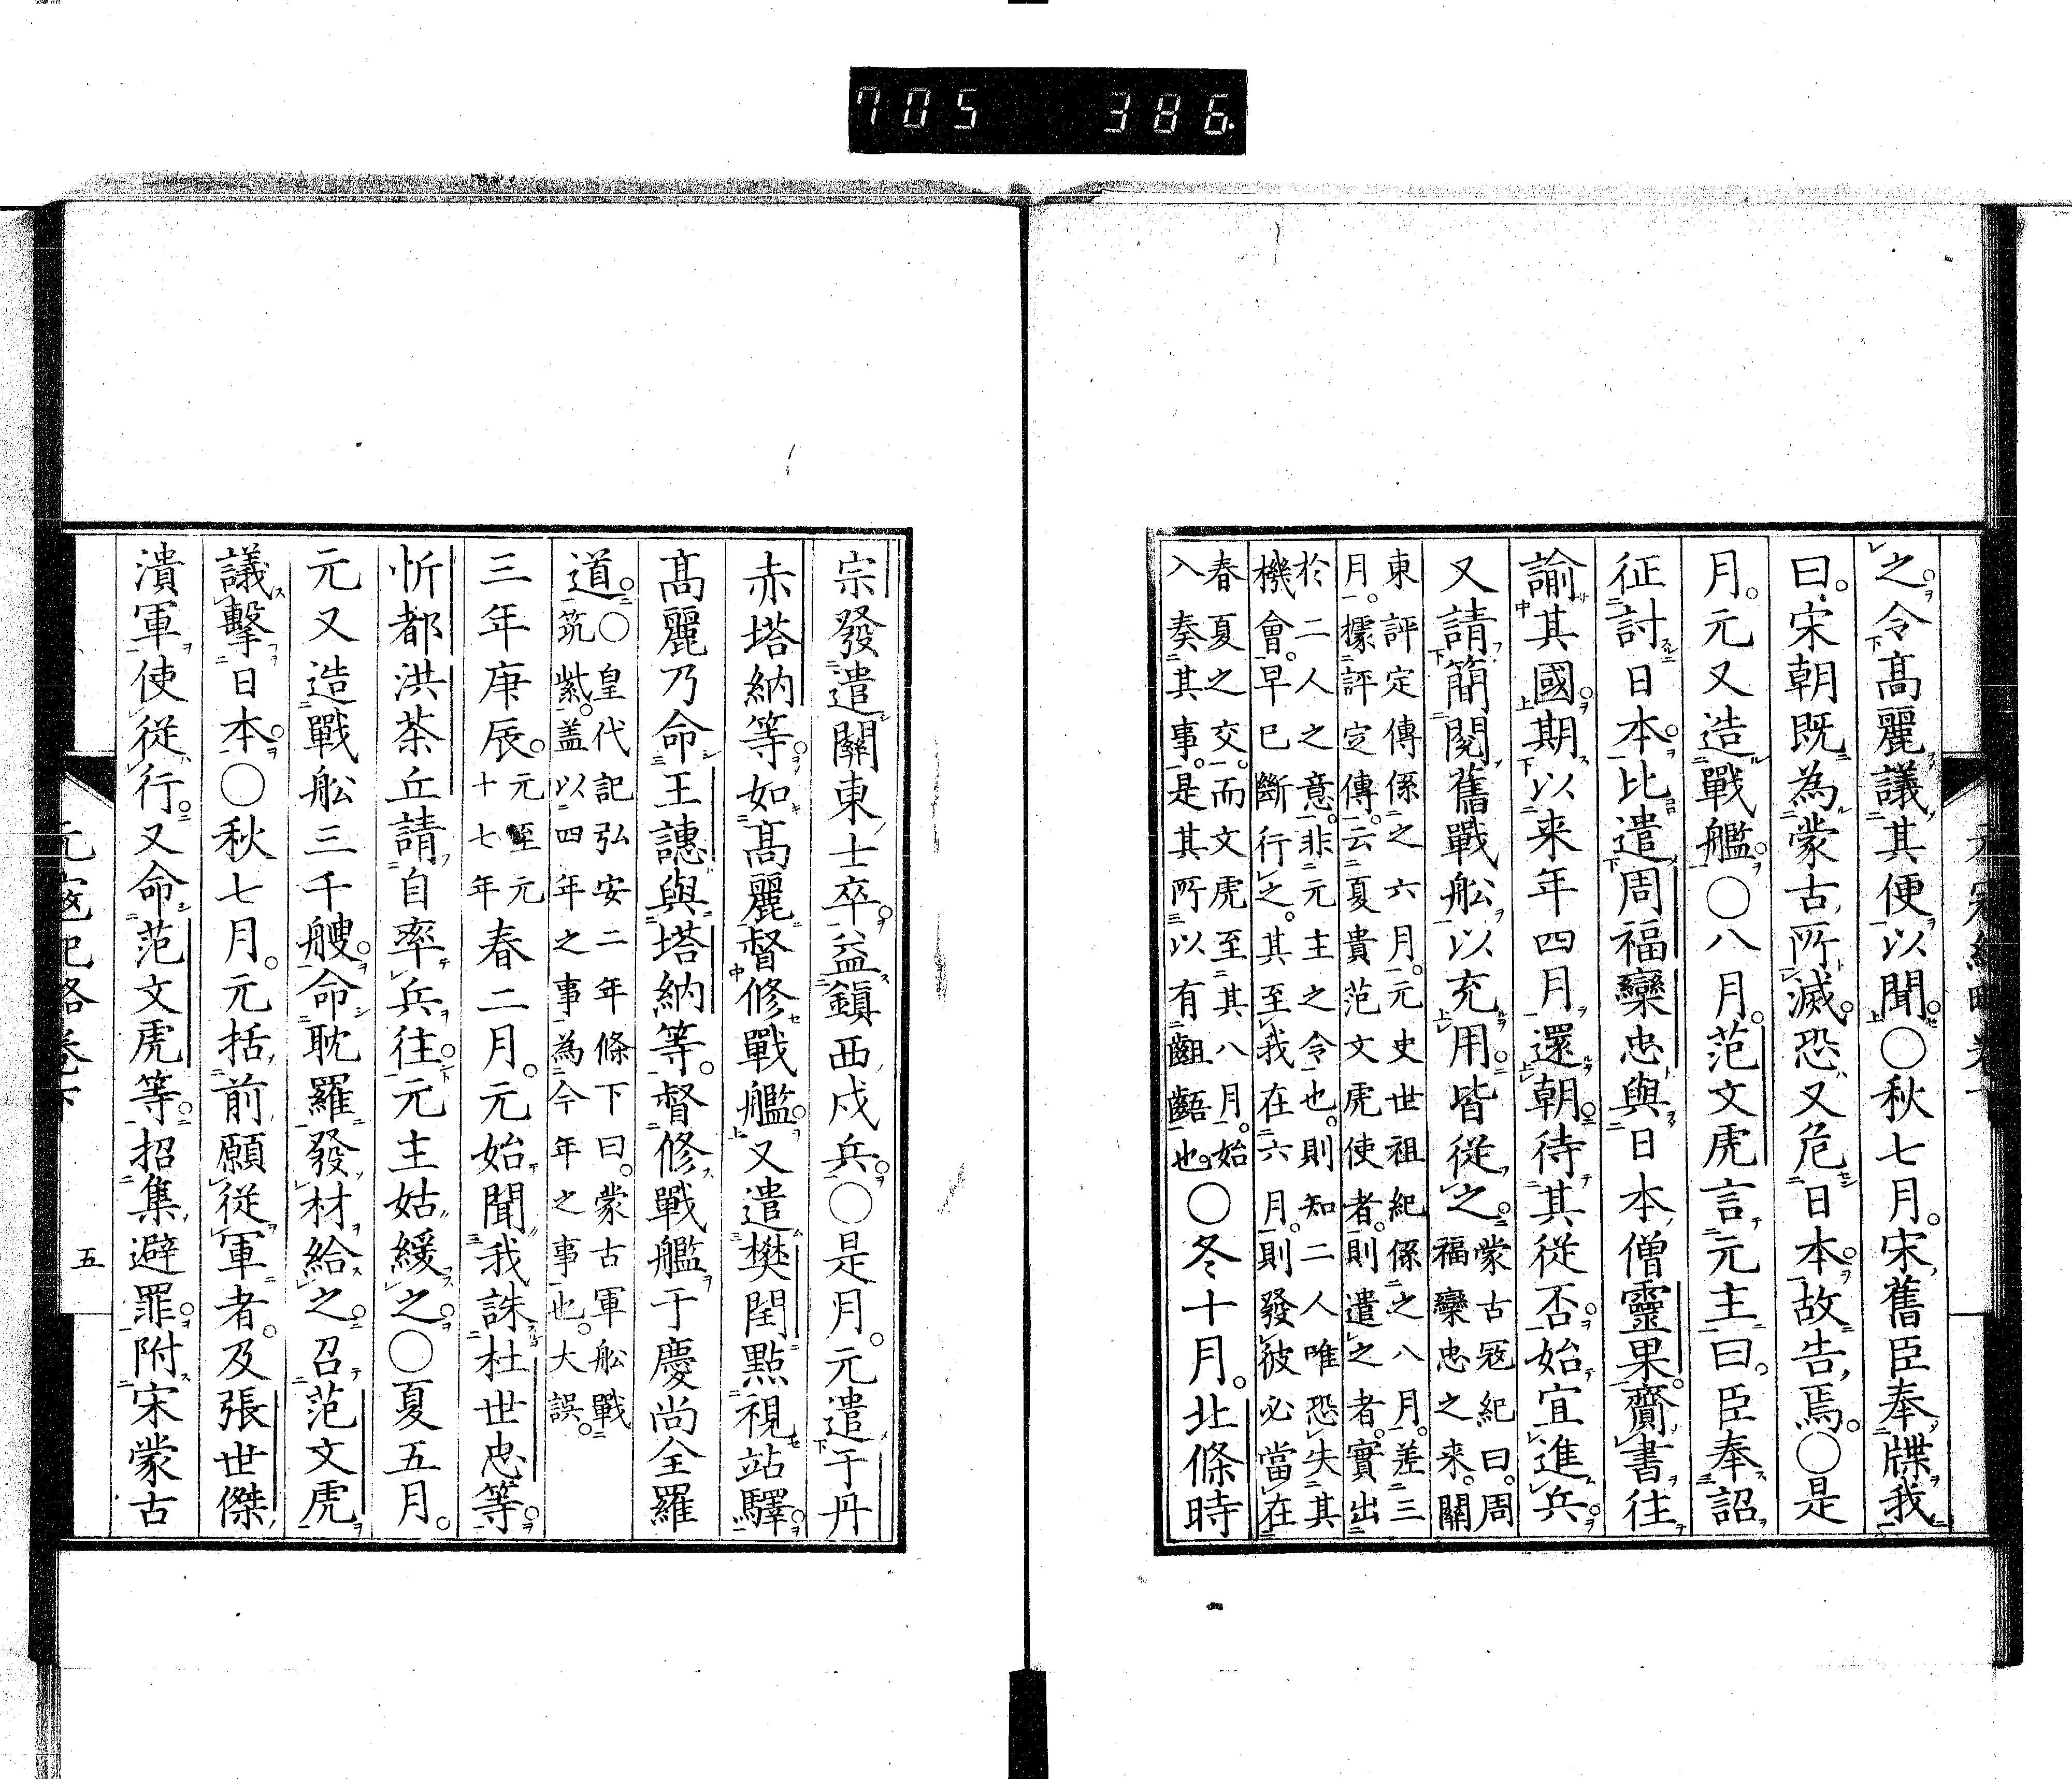 705 386.
之令高麗議其便以聞○秋七月。宋舊臣奉牒我
曰。宋朝既為蒙古所滅。恐又危日本。故告焉。○是
月。元又造戰艦。○八月。范文虎言元主曰。臣奉詔
征討日本。比遣周福欒忠與日本僧靈果。齎書往
諭其國。期以来年四月還朝。待其從否。始宜進兵。
又請簡閱舊戰舩以充用。皆從之。蒙古冦紀曰。周
福欒忠之来。關
東評定傳係之六月。元史世祖紀係之八月。差三
月。據評定傳。云夏貴范文虎使者。則遣之者。實出
於二人之意。非元主之令也。則知二人唯恐失其
機會。早已斷行之。其至我在六月。則發彼必當在
春夏之交。而文虎至其八月。始
入奏其事。是其所以有齟齬也。○冬十月。北條時
宗發遣關東士卒。益鎮西戍兵。○是月。元遣于丹
赤塔納等。如高麗督修戰艦。又遣樊閏點視站驛。
高麗乃命王譓與塔納等。督修戰艦于慶尚全羅
道。○皇代記弘安二年條下曰。蒙古軍舩戰
筑紫。盖以四年之事為今年之事也。大誤。
三年庚辰。元至元
十七年春二月。元始聞我誅杜世忠等。
忻都洪茶丘請自率兵往。元主姑緩之。○夏五月。
元又造戰舩三千艘。命耽羅發材給之。召范文虎
議擊日本。○秋七月。元括前願從軍者。及張世傑
潰軍使從行。又命范文虎等。招集避罪附宋蒙古
元寇紀略卷下
五